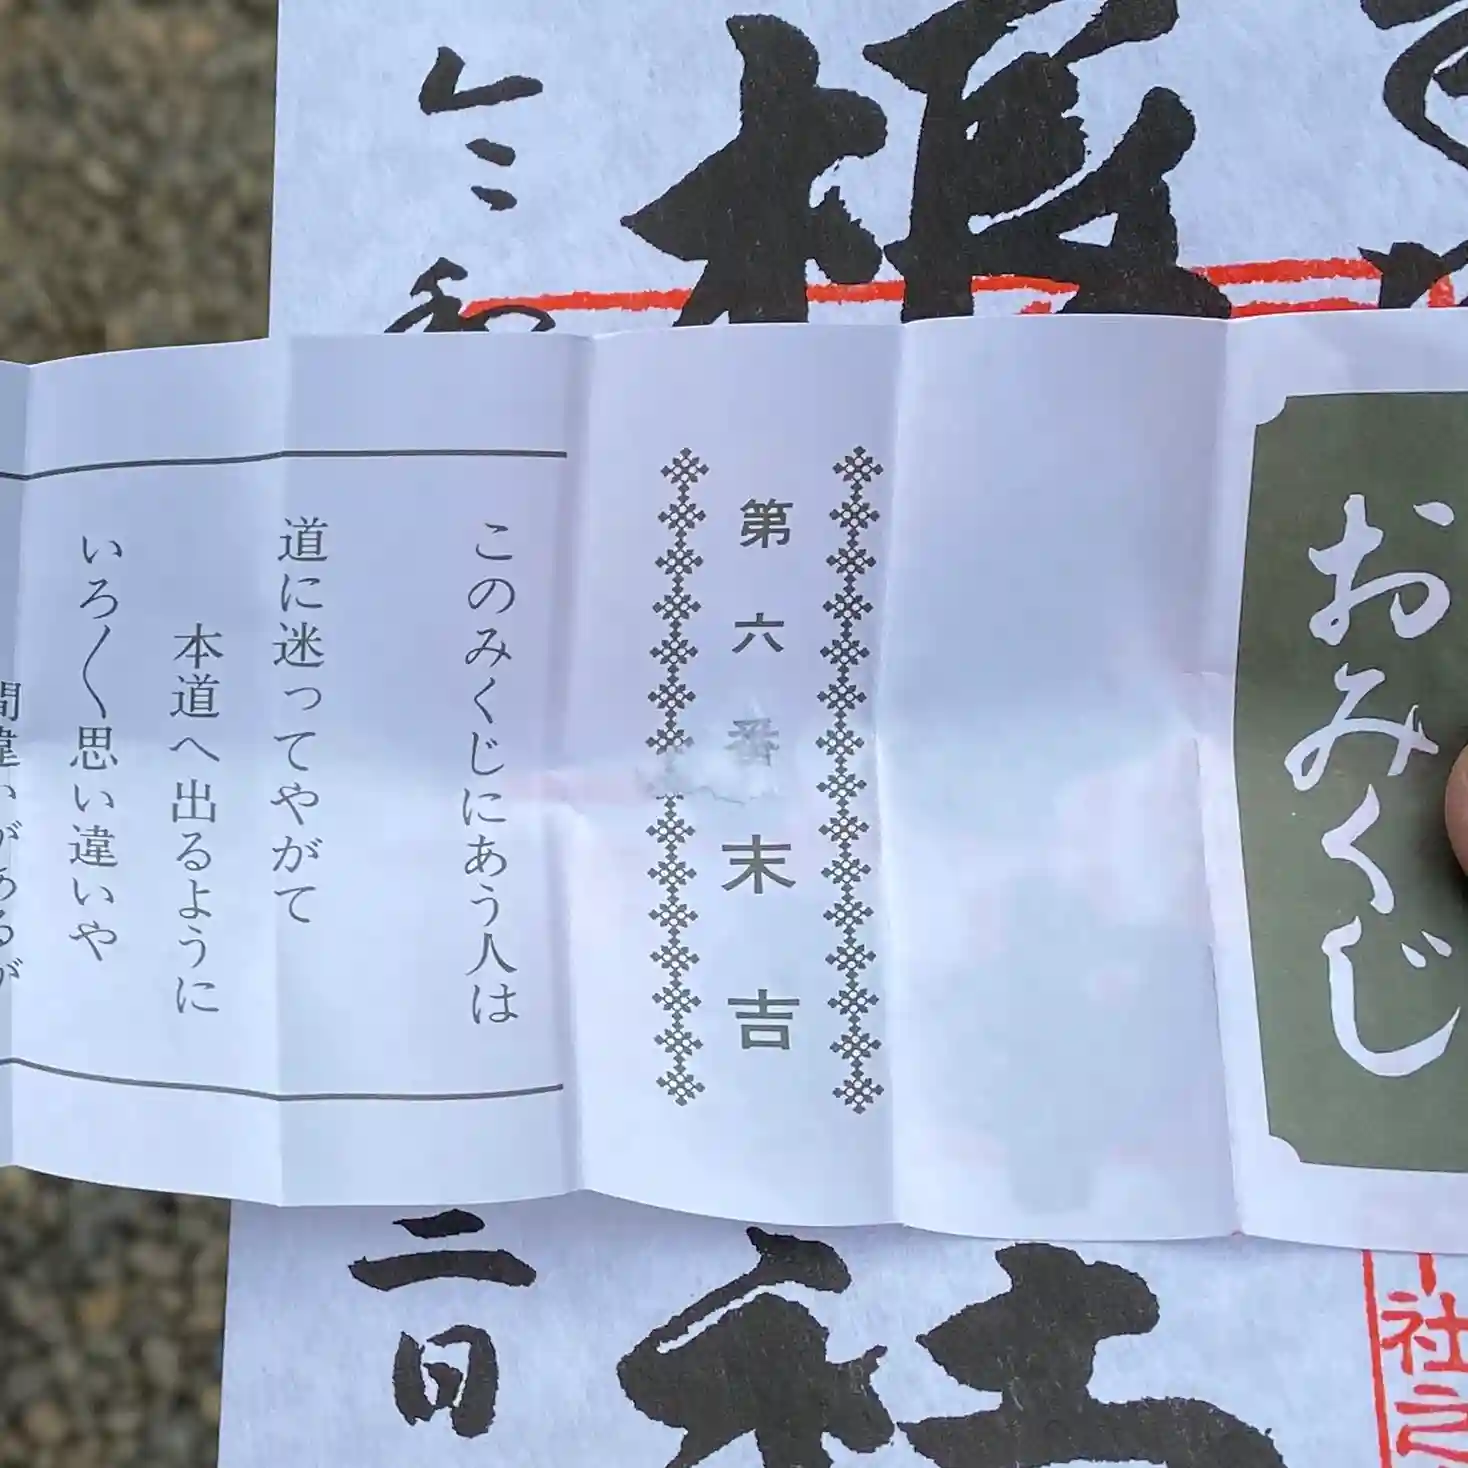 おみくじ
第六番 末吉
このみくじにあう人は
道に迷ってやがて
本道へ出るように
いろ〱思い違いや
間違いがあるが
令和
二日
根
社
社之